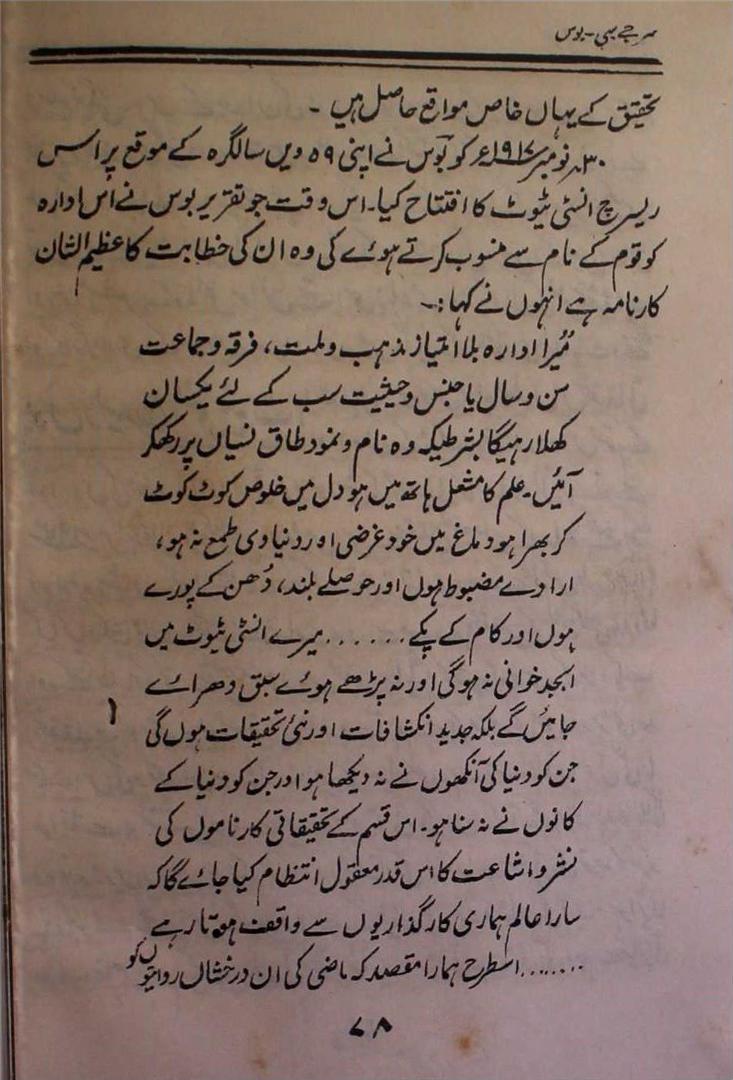 سر جے سی - بوس
تحقیق کے یہاں خاص مواقع حاصل ہیں -
۳۰ر نومبر ۱۹۱۷ء کو بوس نے اپنی ۵۹ ویں سالگرہ کے موقع پر اسس
ریسرچ انسٹی ٹیوٹ کا افتتاح کیا۔ اس وقت جو تقریر بوس نے اس ادارہ
کو قوم کے نام سے منسوب کرتے ہوے کی وہ ان کی خطابت کا عظیم الشان
کارنامہ ہے انہوں نے کہا :-
میرا ادارہ بلا امتیاز مذہب و ملت، فرقہ و جماعت
سن و سال یا جنس و حیثیت سب کے لئے یکسان
کھلا رہیگا بشرطیکہ وہ نام و نمود طاق نسیاں پر رکھکر
آئیں۔ علم کا مشعل ہاتھ میں ہو دل میں خلوص کوٹ کوٹ
کر بھرا ہو دماغ میں خود غرضی اور دنیاوی طمع نہ ہو،
ارادے مضبوط ہوں اور حوصلے بلند، دُھن کے پورے
ہوں اور کام کے پکے ...... میرے انسٹی ٹیوٹ میں
ابجد خوانی نہ ہوگی اور نہ پڑھے ہوے سبق دھراے
جائیں گے بلکہ جدید انکشافات اور نئی تحقیقات ہوں گی
جن کو دنیا کی آنکھوں نے نہ دیکھا ہو اور جن کو دنیا کے
کانوں نے نہ سنا ہو۔ اس قسم کے تحقیقاتی کارناموں کی
نشر و اشاعت کا اس قدر معقول انتظام کیا جاے گا کہ
سارا عالم ہماری کارگذاریوں سے واقف ہوتا رہے
........ اسطرح ہمارا مقصد کہ ماضی کی ان درخشاں روایتوں کو
۷۸